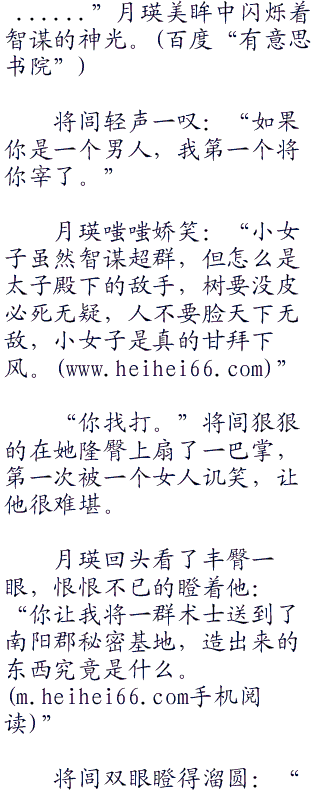 ......”月瑛美眸中闪烁着
智谋的神光。(百度“有意思
书院”)
将闾轻声一叹：“如果
你是一个男人，我第一个将
你宰了。”
月瑛嗤嗤娇笑：“小女
子虽然智谋超群，但怎么是
太子殿下的敌手，树要没皮
必死无疑，人不要脸天下无
敌，小女子是真的甘拜下
风。(www.heihei66.com)”
“你找打。”将闾狠狠
的在她隆臀上扇了一巴掌，
第一次被一个女人讥笑，让
他很难堪。
月瑛回头看了丰臀一
眼，恨恨不已的瞪着他：
“你让我将一群术士送到了
南阳郡秘密基地，造出来的
东西究竟是什么。
(m.heihei66.com手机阅
读)”
将闾双眼瞪得溜圆：“